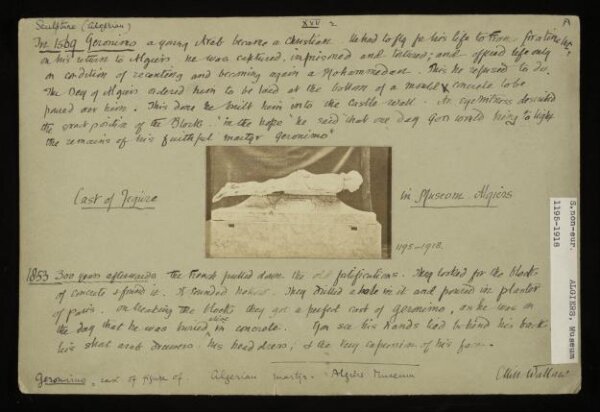 Sculpture (Algerian)
XVI 2
A
In 1569 Geronimo a young Arab became a Christian. He had to fly for his life to Oran. for a time but
on his return to Algiers he was captured, imprisoned and tortured; and offered life only
on condition of recanting and becoming again a Mohammedan. This he refused to do.
The Dey of Algiers ordered him to be laid at the bottom of a mould & concrete to be
poured over him. This done he built him into the Castle wall. An eyewitness described
the exact position of the Block. "in the hope" he said that one day God would bring to light
the remains of his faithful martyr Geronimo"
Cast of Figure
in Museum Algiers
1195-1918.
1853 300 years afterwards the French pulled down the old fortifications. They looked for the blocks
of concrete & found it. It sounded hollow. They drilled a hole in it and poured in plaster
of paris. On breaking the blocks they got a perfect cast of Geronimo, as he was on
the day that he was buried alive in concrete. You see his hands tied behind his back
his short arab drawers. his head dress, & the very expression of his face.
Geronimo, cast of figure of. Algerian martyr. Algiers Museum
Wallace
S.non-eur. ALGIERS, Museum
1195-1918